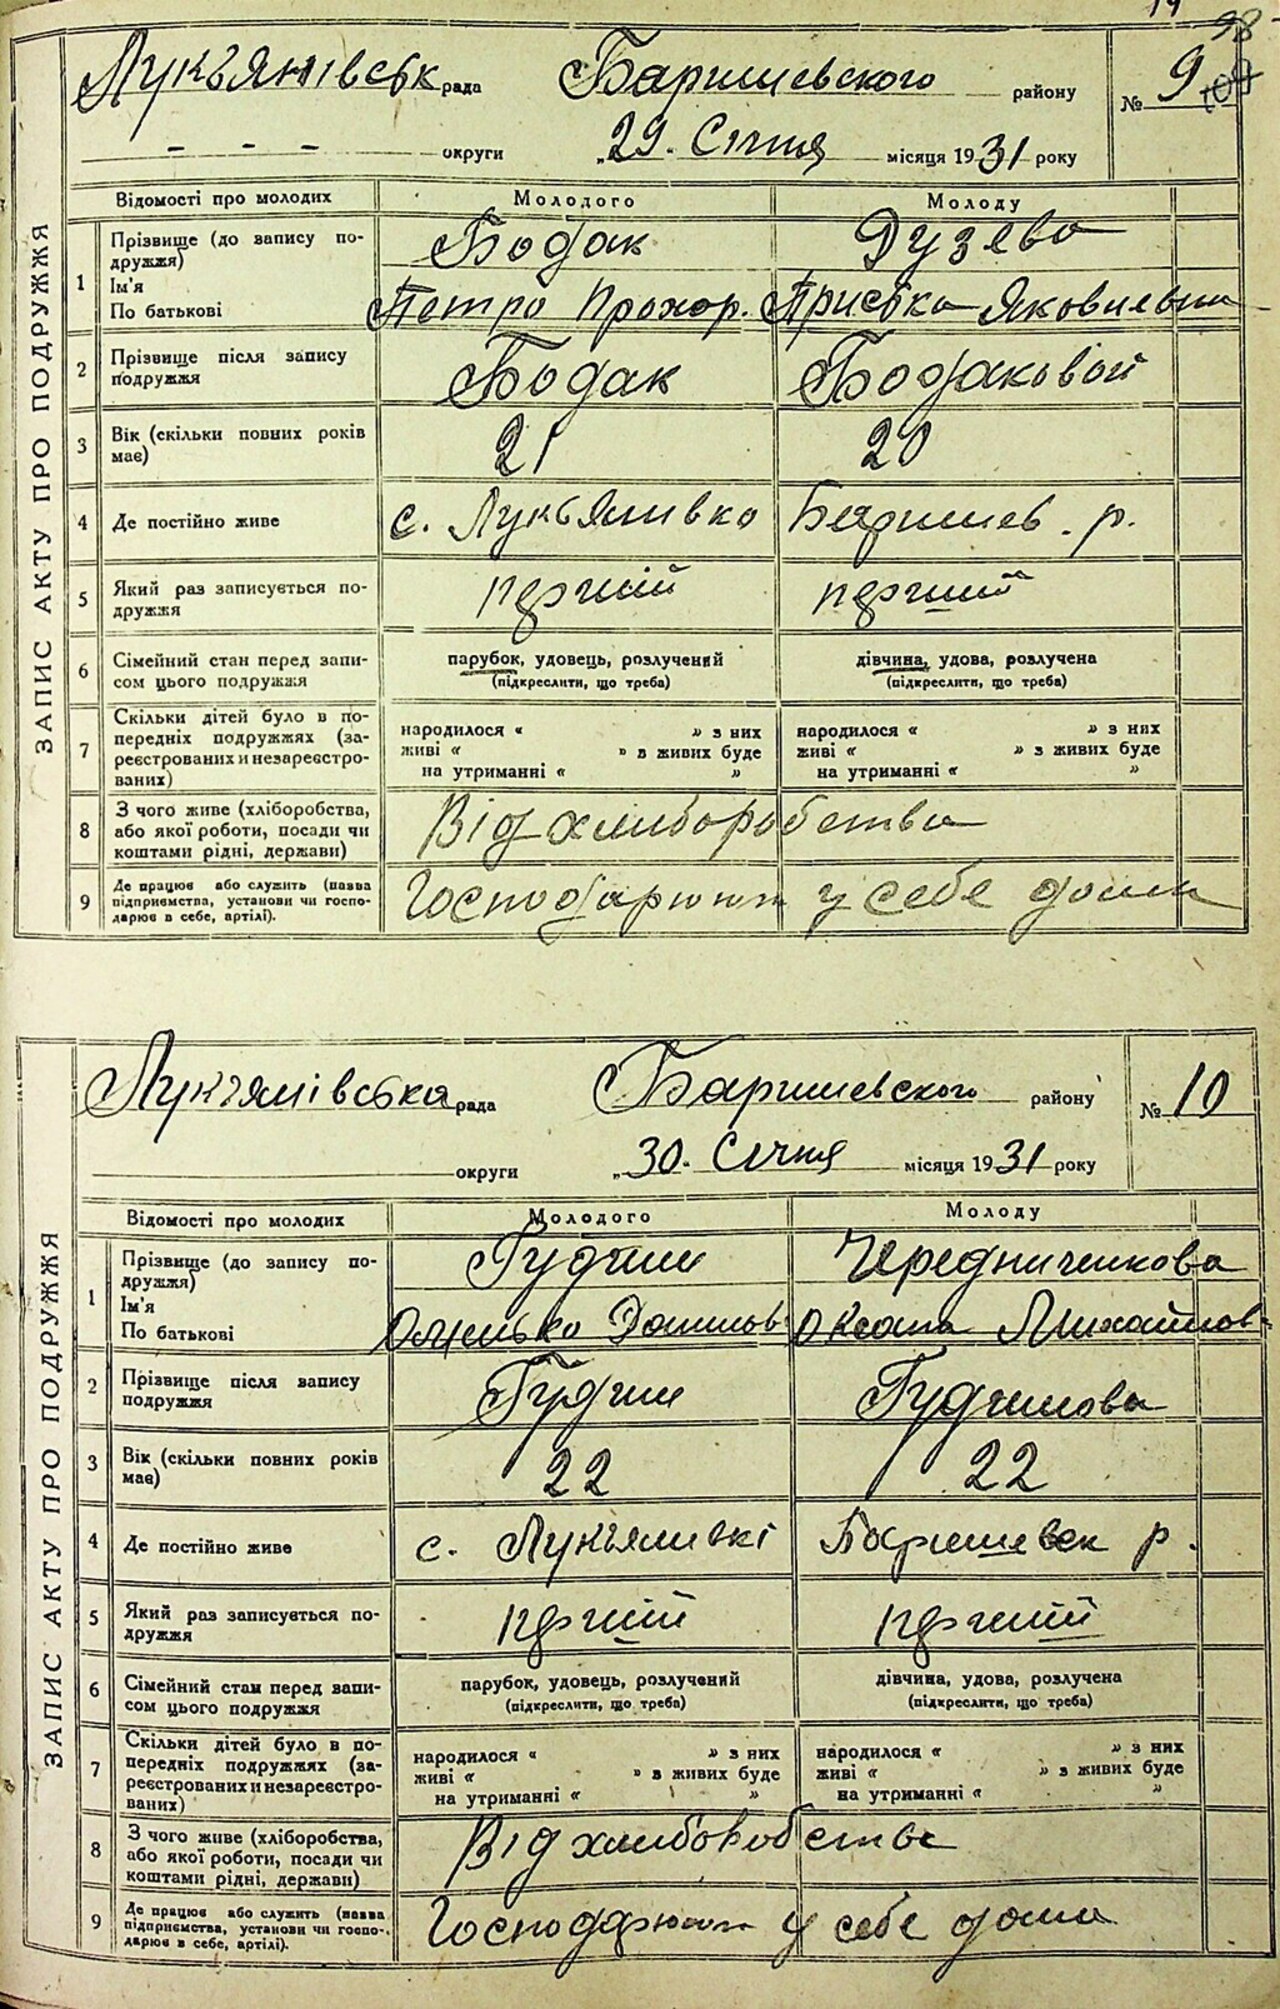 98
Лукъянівськ рада Баришевского району № 9
- - - округи „29. Січня місяця 1931 року
ЗАПИС АКТУ ПРО ПОДРУЖЖЯ
Відомості про молодих Молодого Молоду
1 Прізвище (до запису по-
дружжя) Бодак Дузєва
Ім'я
По батькові Петро Прохор. Приська Яковлевна
2 Прізвище після запису
подружжя Бодак Бодаковой
3 Вік (скільки повних років
має) 21 20
4 Де постійно живе с. Лукъянивка Баришев. р.
5 Який раз записується по-
дружжя перший перший
6 Сімейний стан перед запи-
сом цього подружжя
парубок, удовець, розлучений дівчина, удова, розлучена
(підкреслити, що треба) (підкреслити, що треба)
7 Скільки дітей було в по-
передніх подружжях (за-
реєстрованих и незареєстро-
ваних)
народилося “ ” з них народилося “ ” з них
живі “ ” в живих буде живі “ ” з живих буде
на утриманні “ ” на утриманні “ ”
8 З чого живе (хліборобства,
або якої роботи, посади чи
коштами рідні, держави) Від хлиборобства
9 Де працює або служить (назва
підприємства, установи чи госпо-
дарює в себе, артілі). Господарюют у себе дома
Лукъянівська рада Баришевского району № 10
округи „30. Січня місяця 1931 року
ЗАПИС АКТУ ПРО ПОДРУЖЖЯ
Відомості про молодих Молодого Молоду
1 Прізвище (до запису по-
дружжя) Чередниченкова
Ім'я
По батькові Омелько Данилов Оксана Михайлов-
2 Прізвище після запису
подружжя
3 Вік (скільки повних років
має) 22 22
4 Де постійно живе с. Лукъянивкі Баришевск р.
5 Який раз записується по-
дружжя перший перший
6 Сімейний стан перед запи-
сом цього подружжя
парубок, удовець, розлучений дівчина, удова, розлучена
(підкреслити, що треба) (підкреслити, що треба)
7 Скільки дітей було в по-
передніх подружжях (за-
реєстрованих и незареєстро-
ваних)
народилося “ ” з них народилося “ ” з них
живі “ ” в живих буде живі “ ” з живих буде
на утриманні “ ” на утриманні “ ”
8 З чого живе (хліборобства,
або якої роботи, посади чи
коштами рідні, держави) Від хлиборобства
9 Де працює або служить (назва
підприємства, установи чи госпо-
дарює в себе, артілі). Господарюют у себе дома